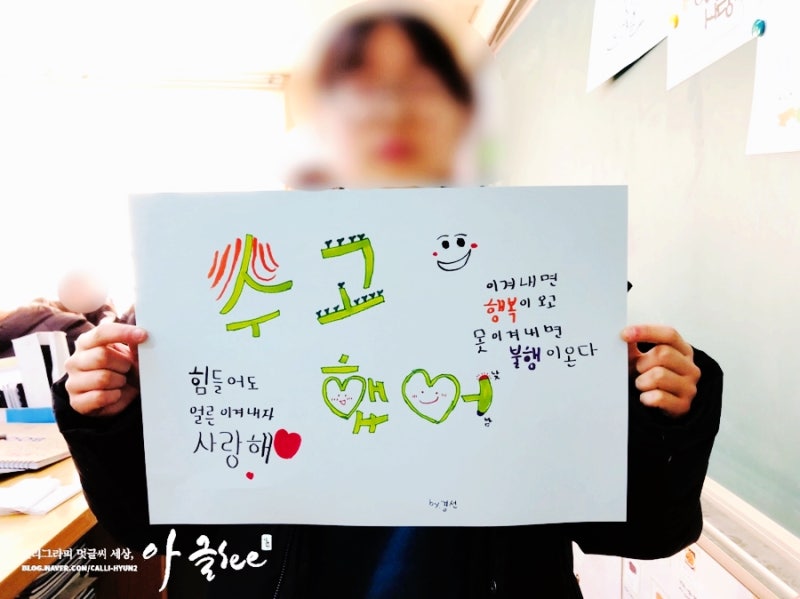 수고
했어
이겨내면
행복이 오고
못 이겨내면
불행이 온다
힘들어도
얼른 이겨내자
사랑해
by 경선
리그라피 멋글씨 세상,
아 글see
BLOG.NAVER.COM/CALLI-HYUN2